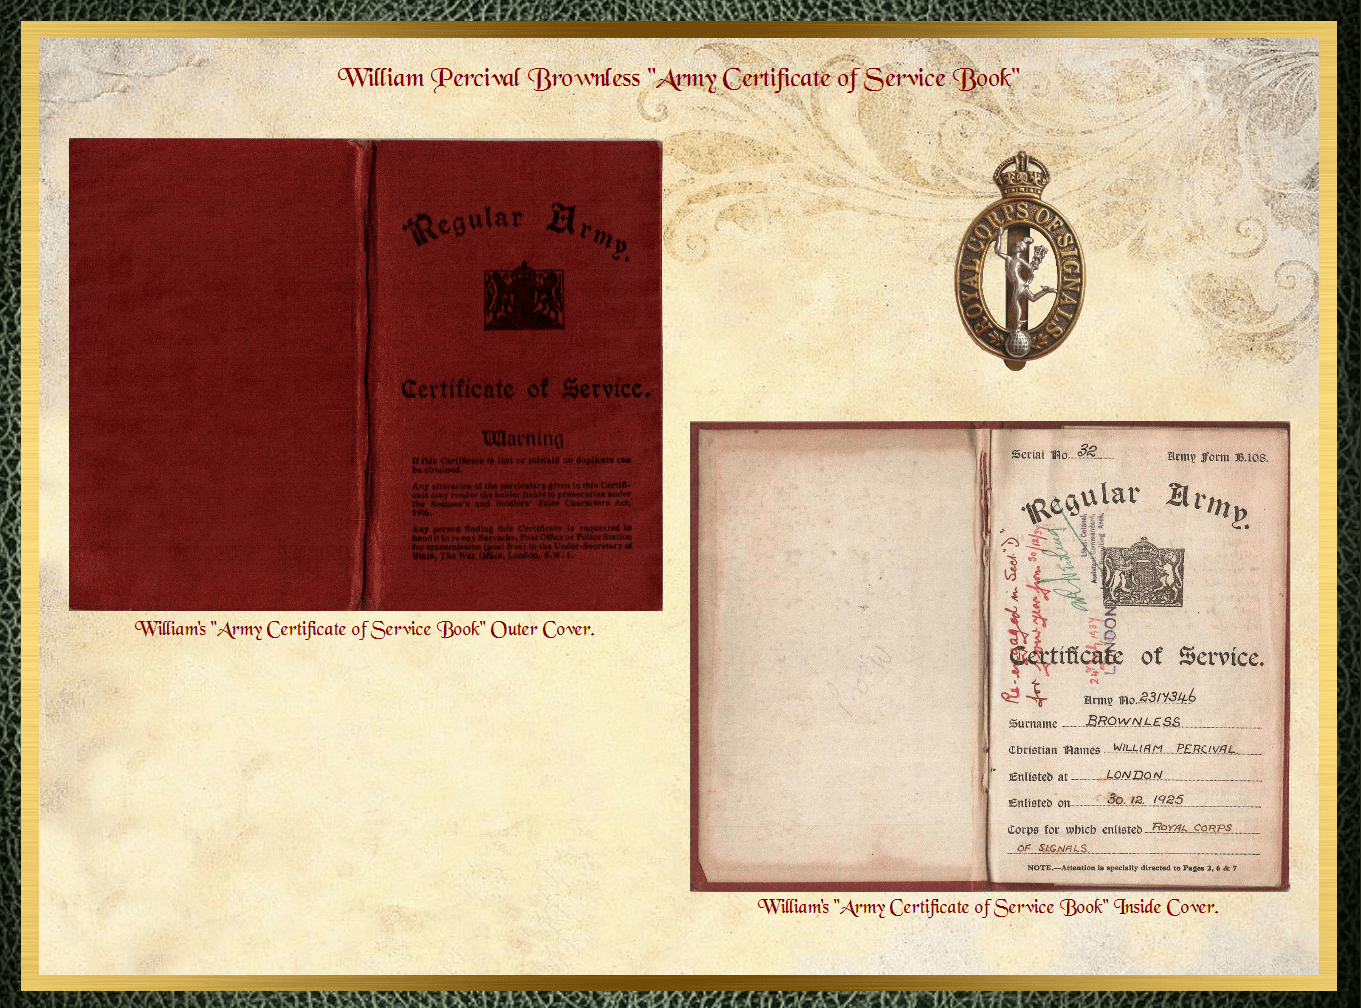 William Percival Brownless "Army Certificate of Service Book"
Regular Army.
Certificate of Service.
Warning
If this Certificate is lost or mislaid no duplicate can
be obtained.
Any alteration of the particulars given in this Certifi-
cate may render the holder liable to prosecution under
the Seamen's and Soldiers' False Characters Act,
1906.
Any person finding this Certificate is requested to
hand it in to any Barracks, Post Office or Police Station
for transmission (post free) to the Under-Secretary of
State, The War Office, London, S.W.1.
William's "Army Certificate of Service Book" Outer Cover.
ROYAL CORPS OF SIGNALS
Serial No. 32 Army Form B.108.
Regular Army.
Re-engaged in Sect. "D"
for four years from 30/12/37
Lieut. Colonel,
LONDON
Certificate of Service.
Army No. 2317346
Surname BROWNLESS
Christian Names WILLIAM PERCIVAL
Enlisted at LONDON
Enlisted on 30. 12. 1925
Corps for which enlisted ROYAL CORPS
OF SIGNALS
NOTE.—Attention is specially directed to Pages 2, 6 & 7
William's "Army Certificate of Service Book" Inside Cover.